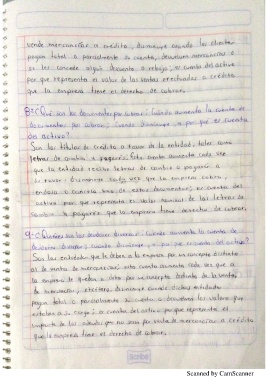 vende mercancías a crédito, disminuye cuando los clientes
pagan total o parcialmente su cuenta, devuelven mercancías o
se les concede algún descuento o rebaja, es cuenta del activo
por que representa el valor de las ventas efectuadas a crédito
que la empresa tiene el derecho de cobrar.
8- ¿Qué son los documentos por cobrar? ¿Cuándo aumenta la cuenta de
documentos por cobrar, cuando disminuye y por qué es cuenta
de activo?
Son los títulos de crédito a favor de la entidad, tales como
letras de cambio o pagarés. Esta cuenta aumenta cada vez
que la entidad recibe letras de cambio o pagarés a
su favor, disminuye cada vez que la empresa cobra,
endosa o cancela uno de estos documentos; es cuenta del
activo por que representa el valor nominal de las letras de
cambio o pagarés que la empresa tiene derecho de cobrar.
9- ¿Quiénes son los deudores diversos? ¿Cuándo aumenta la cuenta de
deudores diversos, cuando disminuye, y por qué es cuenta del activo?
Son las entidades que le deben a la empresa por un concepto distinto
al de venta de mercancías; esta cuenta aumenta cada vez que a
la empresa le quedan a deber por un concepto distinto de la venta
de mercancías, etcétera, disminuye cuando dichas entidades
pagan total o parcialmente su cuenta o devuelven los valores que
estaban a su cargo; es cuenta del activo por que representa el
importe de los adeudos que no sean por venta de mercancías a crédito
que la empresa tiene el derecho de cobrar.
Scribe
Scanned by CamScanner